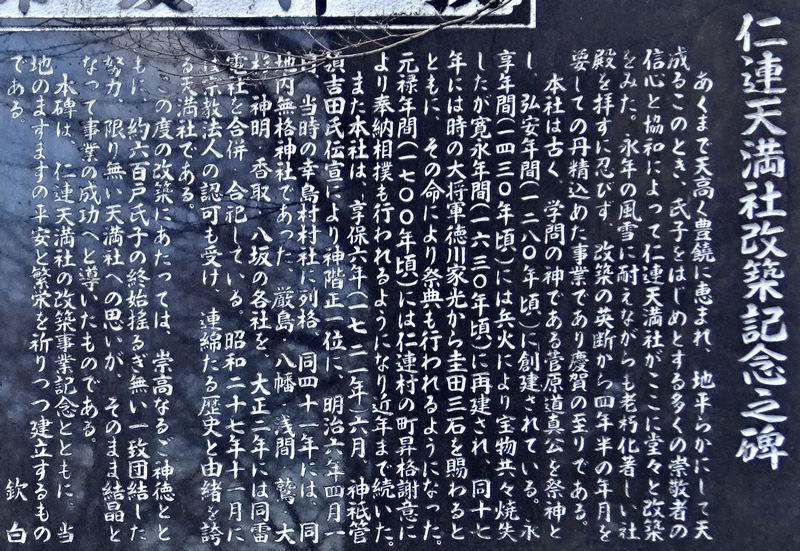 仁連天満社改築記念之碑
あくまで天高く豊饒に恵まれ、地平らかにして天
成るこのとき、氏子をはじめとする多くの崇敬者の
信心と協和によって仁連天満社がここに堂々と改築
をみた。永年の風雪に耐えながらも老朽化著しい社
殿を拝すに忍びず、改築の英断から四年半の年月を
要しての丹精込めた事業であり慶賀の至りである。
本社は古く、学問の神である菅原道真公を祭神と
し、弘安年間(一二八〇年頃)に創建されている。永
享年間(一四三〇年頃)には兵火により宝物共々焼失
したが寛永年間(一六三〇年頃)に再建され、同十七
年には時の大将軍徳川家光から圭田三石を賜わると
ともに、その命により祭典も行われるようになった。
元禄年間(一七〇〇年頃)には仁連村の町昇格謝意に
より奉納相撲も行われるようになり近年まで続いた。
また本社は、享保六年(一七二一年)六月、神祇管
領吉田氏伝宣により神階正一位に、明治六年四月一
日、当時の幸島村村社に列格、同四十一年には、同
地内無格神社であった、厳島・八幡・浅間・鷲・大
杉・神明・香取・八坂の各社を、大正二年には同雷
電社を合併、合祀している。昭和二十七年十一月に
は宗教法人の認可も受け、連綿たる歴史と由緒を誇
る天満社である。
この度の改築にあたっては、崇高なるご神徳とと
もに、約六百戸氏子の終始揺るぎ無い一致団結した
努力、限り無い天満社への思いが、そのまま結晶と
なって事業の成功へと導いたものである。
本碑は、仁連天満社の改築事業記念とともに、当
地のますますの平安と繁栄を祈りつつ建立するもの
である。
欽白